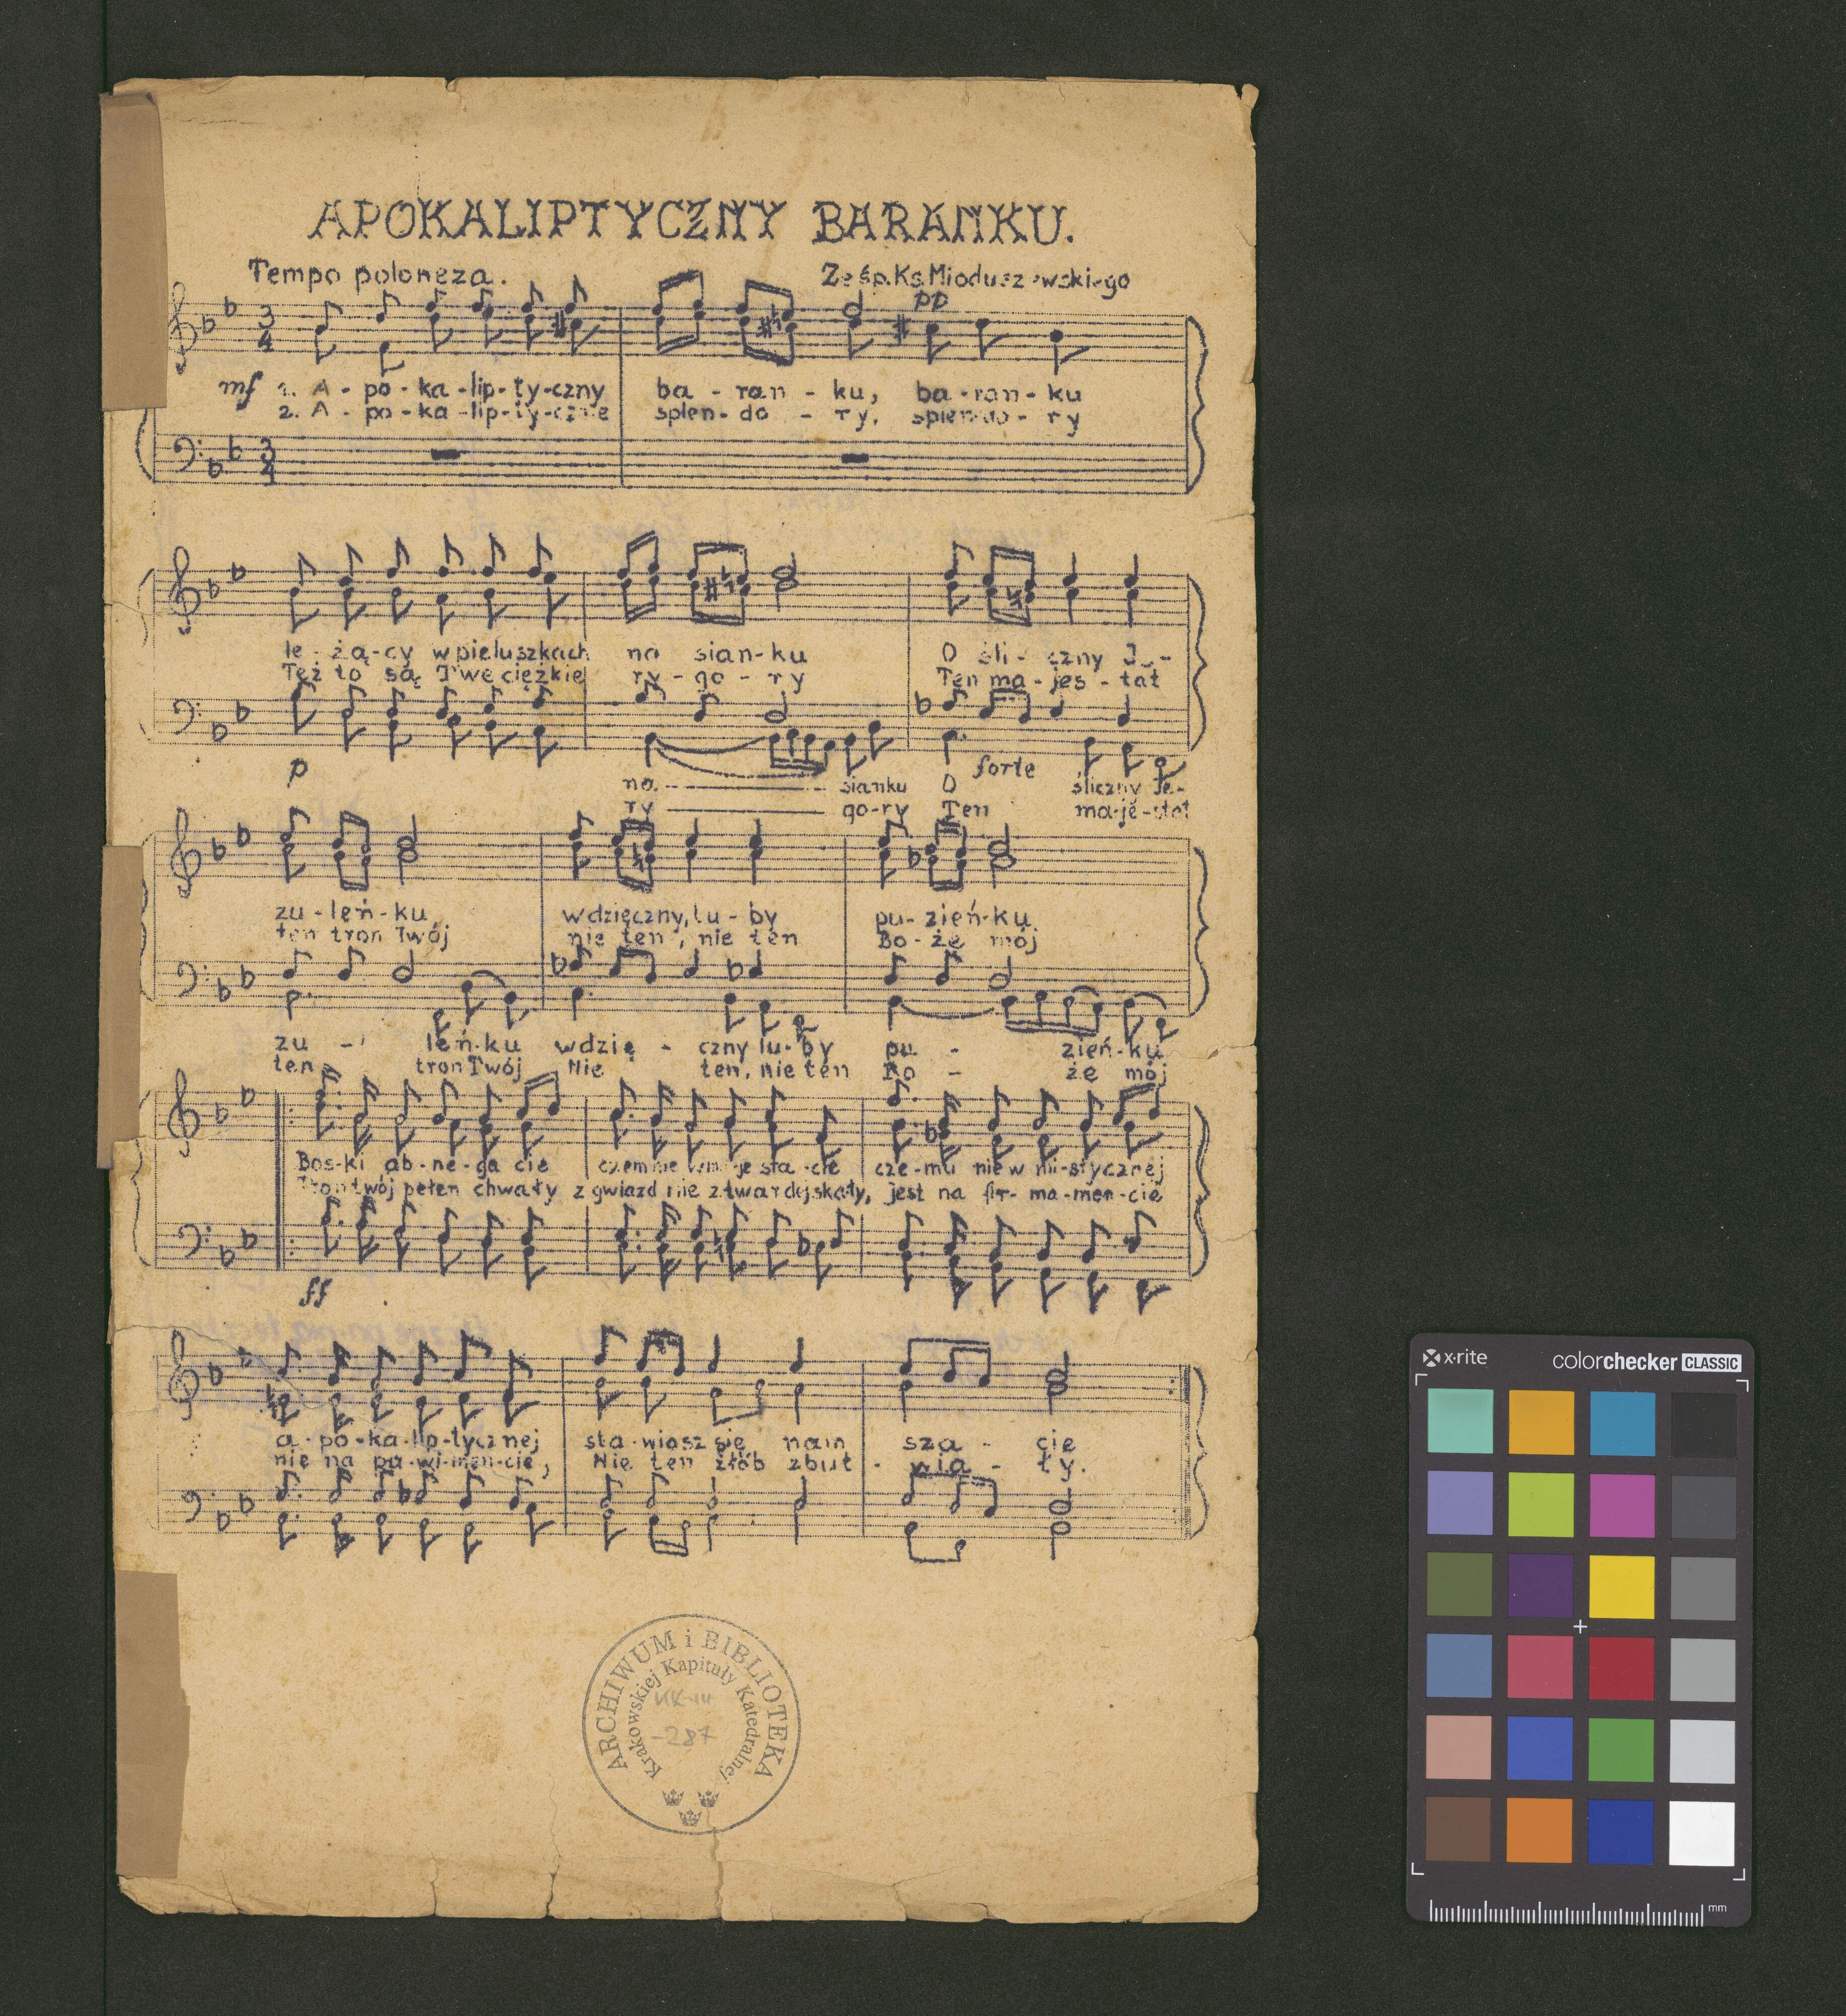 APOKALIPTYCZNY BARANKU.
Tempo poloneza. Ze śp. Ks. Mioduszewskiego
pp
3 4
mf 1. A - po - ka - lip - ty - czny ba - ran - ku, ba - ran - ku
2. A - po - ka - lip - ty - czne splen - do - ry, splen - do - ry
3 4
le - żą - cy w pieluszkach na sian - ku O śli - czny Je -
Też to są Twe ciężkie ry - go - ry Ten ma - jes - tat
p forte
na - sianku O śliczny Je -
ry - go - ry Ten ma - je - stat
zu - leń - ku, wdzięczny, lu - by pu - zień - ku
ten tron Twój nie ten, nie ten Bo - że mój
zu - leń - ku wdzię - czny lu - by pu - zień - ku
ten tron Twój Nie ten, nie ten Bo - że mój
Bos - ki ab - ne - ga cie czem nie w maje sta - cie cze - mu nie w mi - stycznej
Tron twój pełen chwały z gwiazd nie z twardej skały, jest na fir - ma - men - cie
ff
a - po - ka - lip - tycznej sta - wiasz się nam sza - cie
nie na pa - wi - men - cie, Nie ten żłób zbut - wia - ły.
ARCHIWUM i BIBLIOTEKA
Krakowskiej Kapituły Katedralnej
-287
x·rite colorchecker CLASSIC
mm